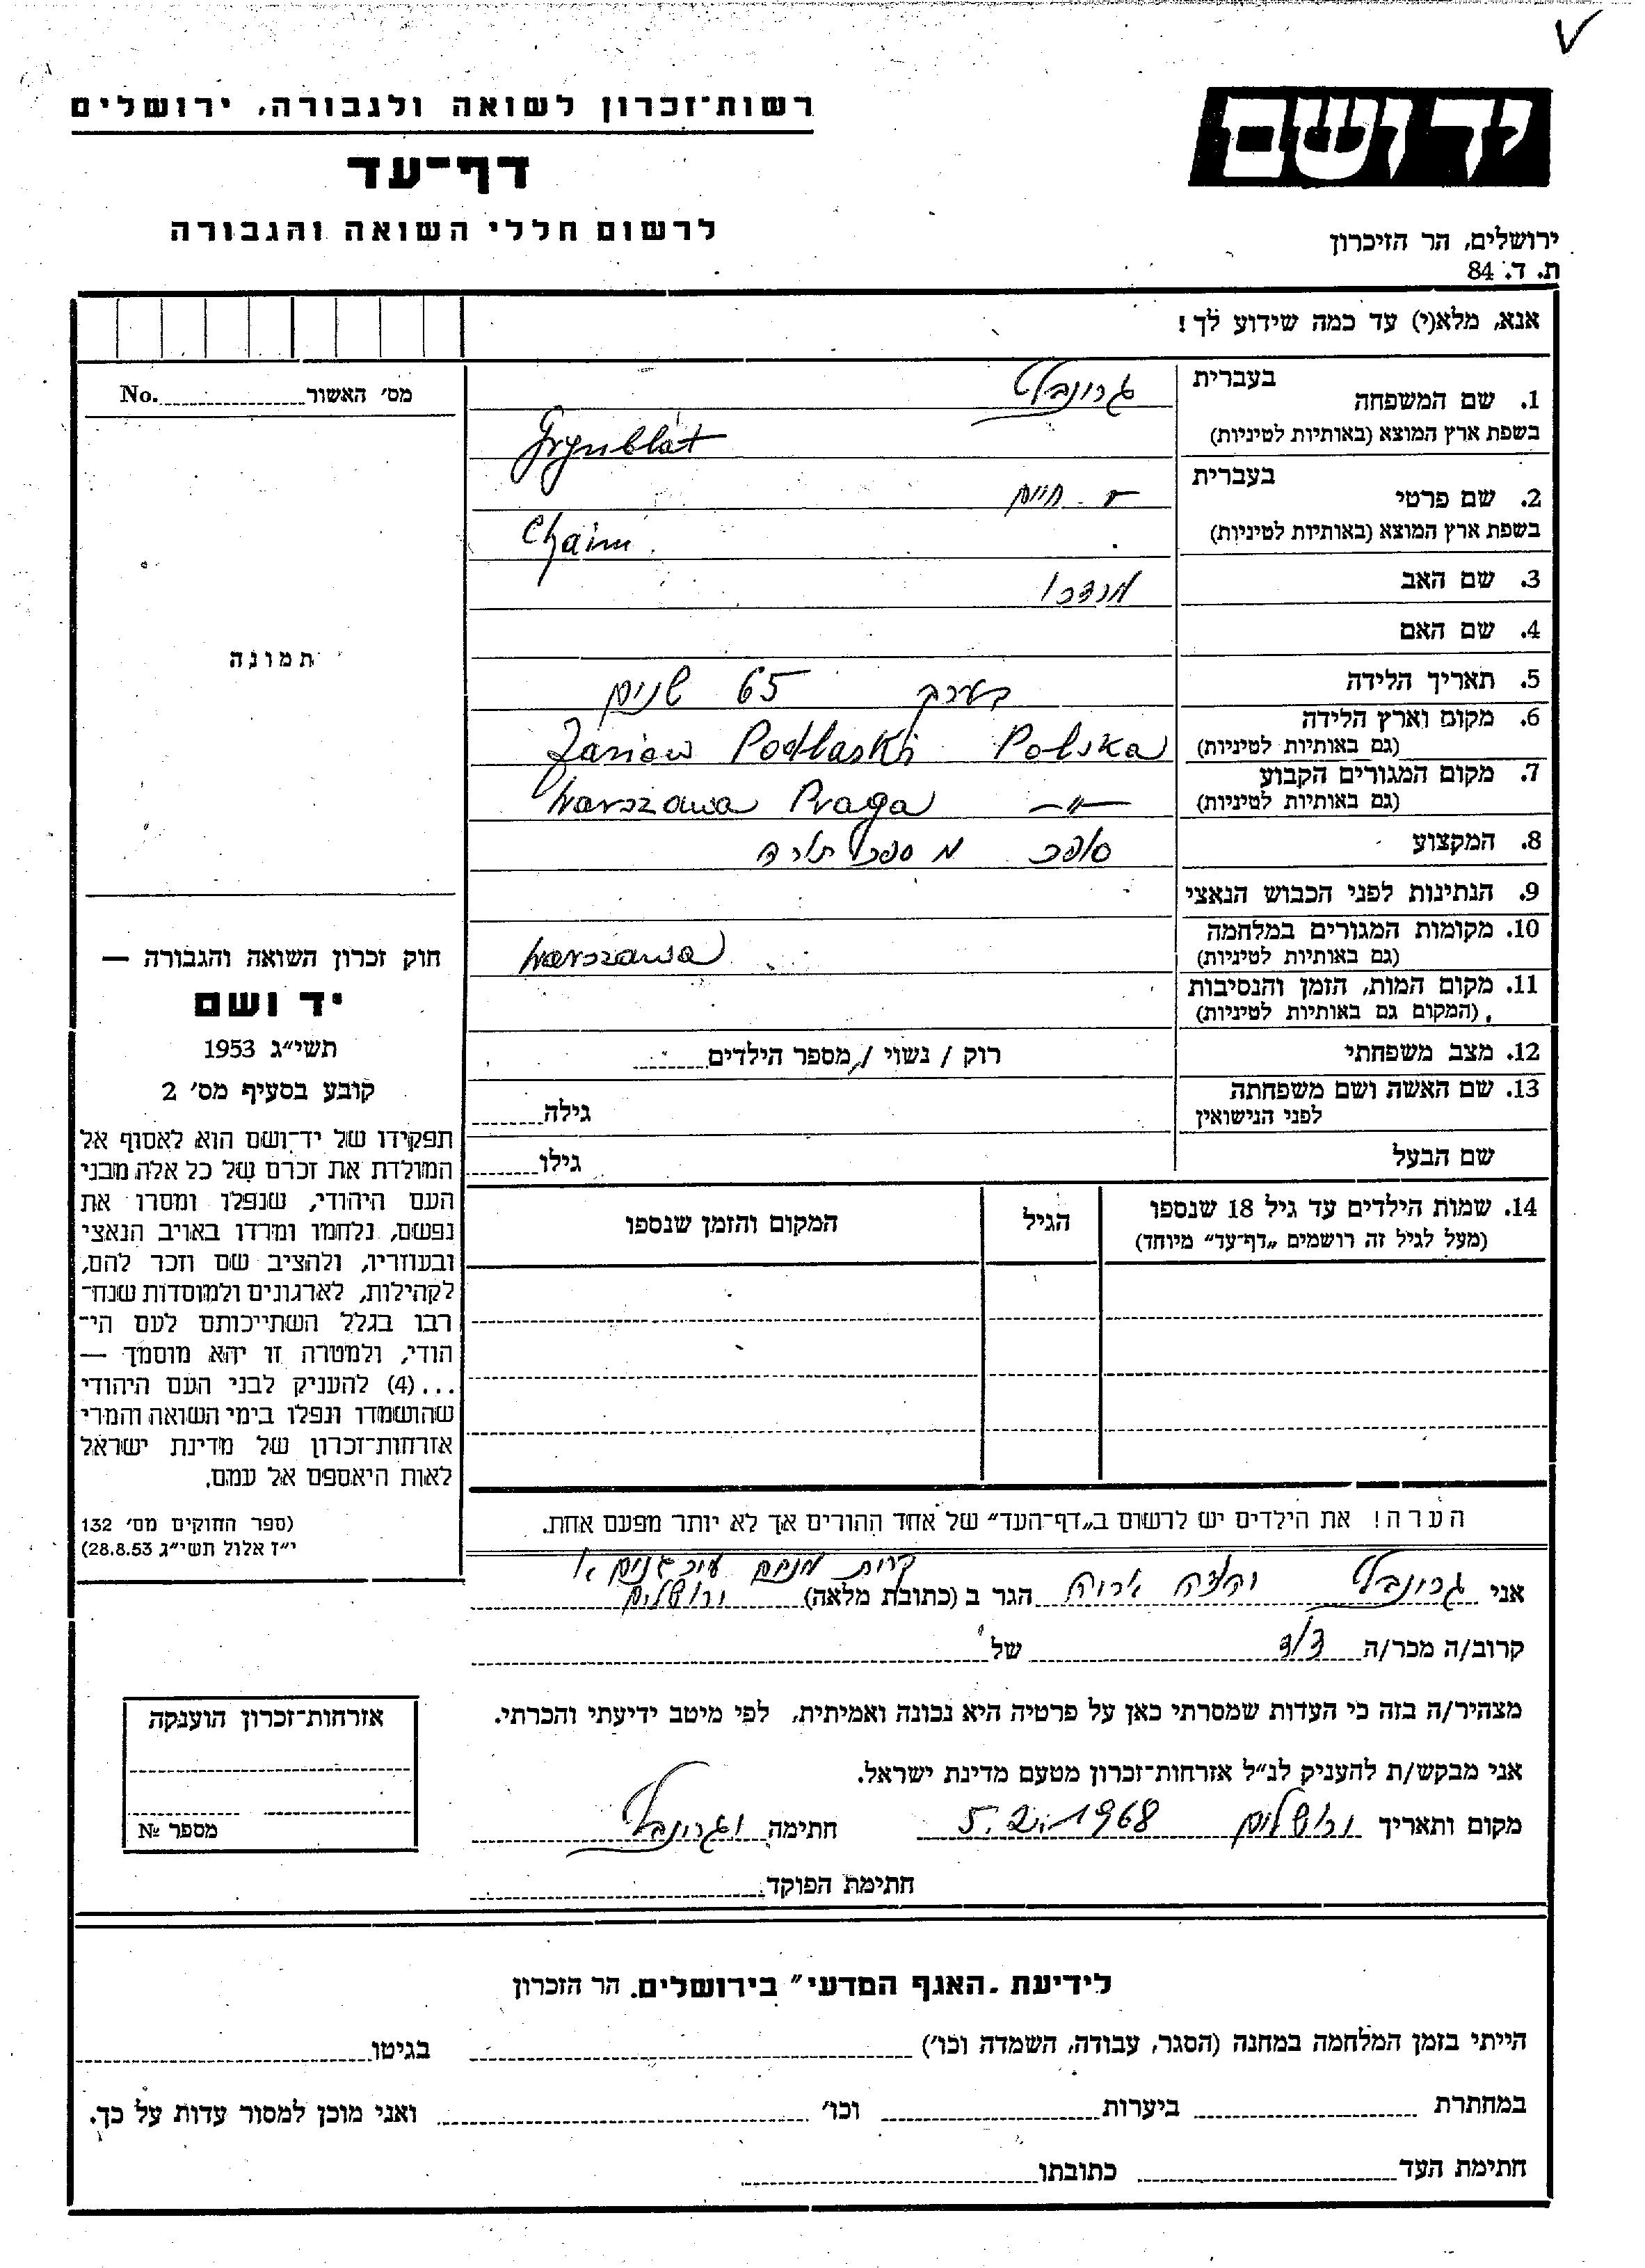 רשות־זכרון לשואה ולגבורה, ירושלים
דף־עד
לרשום חללי השואה והגבורה
יד ושם
ירושלים, הר הזיכרון
ת. ד. 84
אנא, מלא(י) עד כמה שידוע לך!
מס׳ האשור No.
תמונה
1. שם המשפחה בעברית גרונבלט
בשפת ארץ המוצא (באותיות לטיניות) Grynblat
2. שם פרטי בעברית חיים
בשפת ארץ המוצא (באותיות לטיניות) Chaim
3. שם האב מרדכי
4. שם האם
5. תאריך הלידה בערך 65 שנים
6. מקום וארץ הלידה (גם באותיות לטיניות) Janów Podlaski Polska
7. מקום המגורים הקבוע (גם באותיות לטיניות) Warszawa Praga —״—
8. המקצוע סופר מספרי תורה
9. הנתינות לפני הכבוש הנאצי
10. מקומות המגורים במלחמה (גם באותיות לטיניות) Warszawa
11. מקום המות, הזמן והנסיבות
(המקום גם באותיות לטיניות)
12. מצב משפחתי רוק / נשוי / מספר הילדים
13. שם האשה ושם משפחתה לפני הנישואין גילה
שם הבעל גילו
14. שמות הילדים עד גיל 18 שנספו
(מעל לגיל זה רושמים „דף־עד״ מיוחד)
הגיל
המקום והזמן שנספו
חוק זכרון השואה והגבורה —
יד ושם
תשי״ג 1953
קובע בסעיף מס׳ 2
תפקידו של יד־ושם הוא לאסוף אל
המולדת את זכרם של כל אלה מבני
העם היהודי, שנפלו ומסרו את
נפשם, נלחמו ומרדו באויב הנאצי
ובעוזריו, ולהציב שם וזכר להם,
לקהילות, לארגונים ולמוסדות שנח־
רבו בגלל השתייכותם לעם הי־
הודי, ולמטרה זו יהא מוסמך —
...(4) להעניק לבני העם היהודי
שהושמדו ונפלו בימי השואה והמרי
אזרחות־זכרון של מדינת ישראל
לאות היאספם אל עמם.
(ספר החוקים מס׳ 132
י״ז אלול תשי״ג 28.8.53)
הערה! את הילדים יש לרשום ב„דף־העד״ של אחד ההורים אך לא יותר מפעם אחת.
קרית מנחם עיר גנים א׳
אני גרונבלט הגר ב (כתובת מלאה) ירושלים
קרוב/ה מכר/ה של
מצהיר/ה בזה כי העדות שמסרתי כאן על פרטיה היא נכונה ואמיתית, לפי מיטב ידיעתי והכרתי.
אני מבקש/ת להעניק לנ״ל אזרחות־זכרון מטעם מדינת ישראל.
מקום ותאריך ירושלים 5.2.1968 חתימה י גרונבלט
חתימת הפוקד
אזרחות־זכרון הוענקה
מספר №
לידיעת „האגף המדעי״ בירושלים. הר הזכרון
הייתי בזמן המלחמה במחנה (הסגר, עבודה, השמדה וכו׳) בגיטו
במחתרת ביערות וכו׳ ואני מוכן למסור עדות על כך.
חתימת העד כתובתו